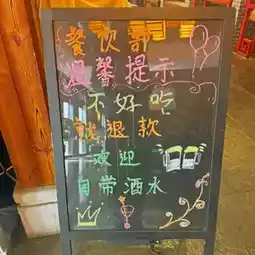 餐饮部
温馨提示
不好吃
就退款
欢迎
自带酒水